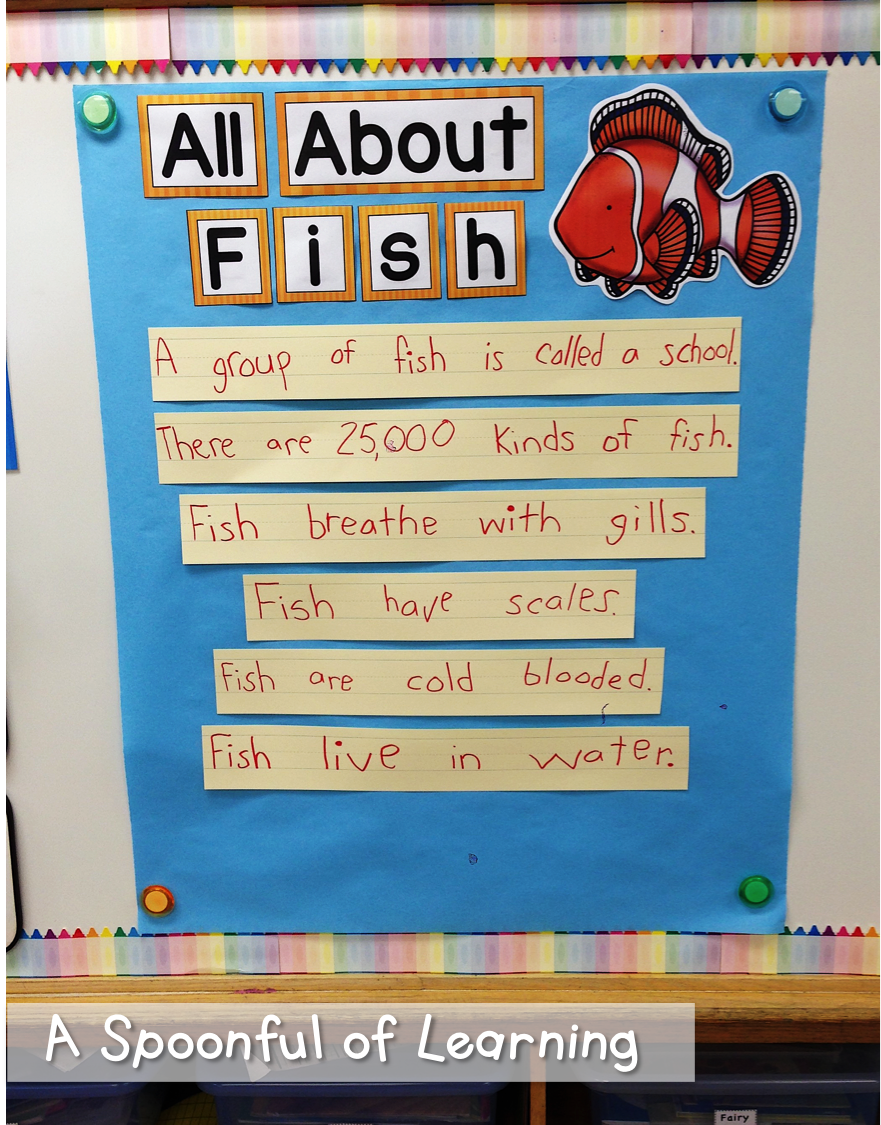 All About
Fish
A group of fish is called a school.
There are 25,000 kinds of fish.
Fish breathe with gills.
Fish have scales.
Fish are cold blooded.
Fish live in water.
A Spoonful of Learning
Fairy